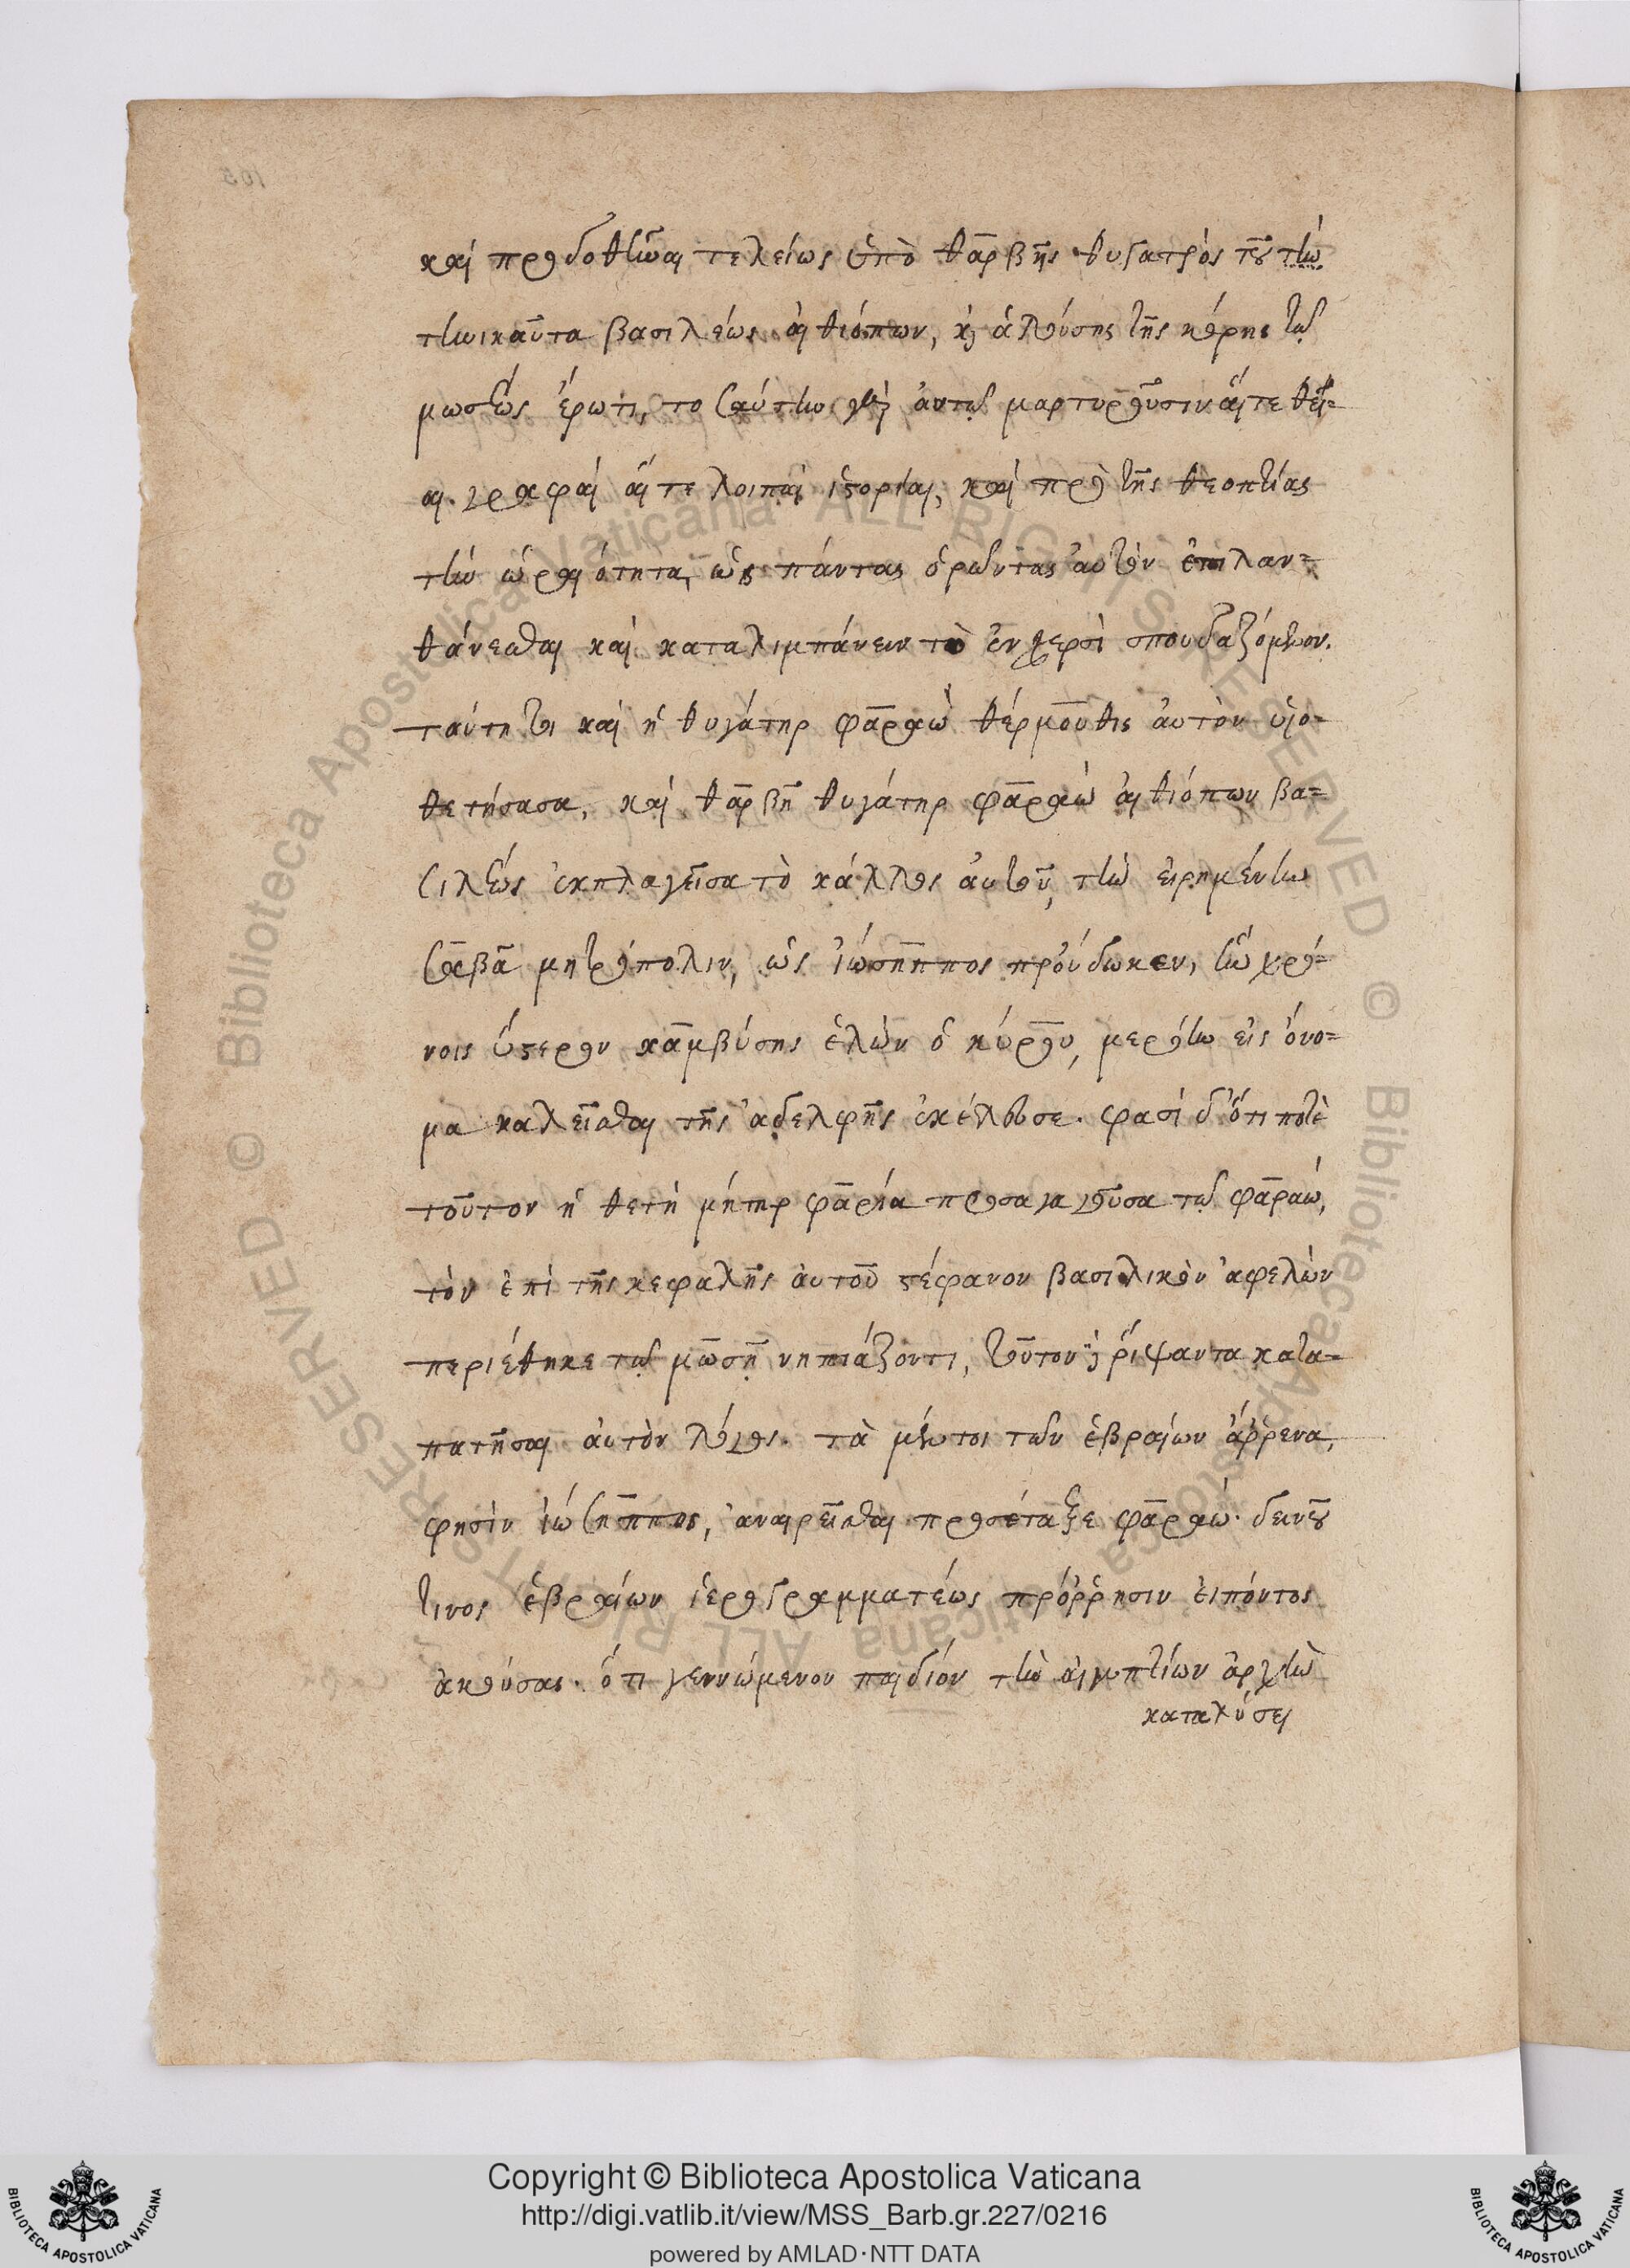 καὶ προδοθῆναι τελείως ὑπὸ θάρβης θυγατρὸς τοῦ τὴν
τηνικαῦτα βασιλέως αἰθιόπων, κ̀ ἁλούσης τῆς κόρης τῷ
μωσέως ἔρωτι, τοσαύτην γὰρ αὐτῷ μαρτυροῦσιν αἵ τε θεῖ=
αι γραφαὶ αἵ τε λοιπαὶ ἱστορίαι, καὶ πρὸ τῆς θεοπτίας
τὴν ὡραιότητα, ὡς πάντας ὁρῶντας αὐτὸν ἐπιλαν=
θάνεσθαι καὶ καταλιμπάνειν τὸ ἐν χερσὶ σπουδαζόμενον.
ταύτῃ τοι καὶ ἡ θυγάτηρ φαραὼ θέρμουθις αὐτὸν υἱο=
θετήσασα, καὶ θάρβη θυγάτηρ φαραὼ αἰθιόπων βα=
σιλέως ἐκπλαγεῖσα τὸ κάλλος αὐτοῦ, τὴν εἰρημένην
σαβᾶ μητρόπολιν, ὡς ἰώσηππος προύδωκεν, ἣν χρό=
νοις ὕστερον καμβύσης ἑλὼν ὁ κύρου, μερόην εἰς ὄνο=
μα καλεῖσθαι τῆς ἀδελφῆς ἐκέλευσε. φασὶ δ' ὅτι ποτὲ
τοῦτον ἡ θετὴ μήτηρ φαρία προσαγαγοῦσα τῷ φαραώ,
τὸν ἐπὶ τῆς κεφαλῆς αὐτοῦ στέφανον βασιλικὸν ἀφελὼν
περιέθηκε τῷ μωσῇ νηπιάζοντι, τοῦτον κ̀ ῥίψαντα κατα=
πατῆσαι αὐτὸν λόγος. τὰ μέντοι τῶν ἑβραίων ἄῤῥενα,
φησὶν ἰώσηππος, ἀναιρεῖσθαι προσέταξε φαραώ. δεινοῦ
τινος ἑβραίων ἱερογραμματέως πρόῤῥησιν εἰπόντος
ἀκούσας. ὅτι γεννώμενον παιδίον τὴν αἰγυπτίων ἀρχὴν
καταλύσει
Copyright © Biblioteca Apostolica Vaticana
http://digi.vatlib.it/view/MSS_Barb.gr.227/0216
powered by AMLAD·NTT DATA